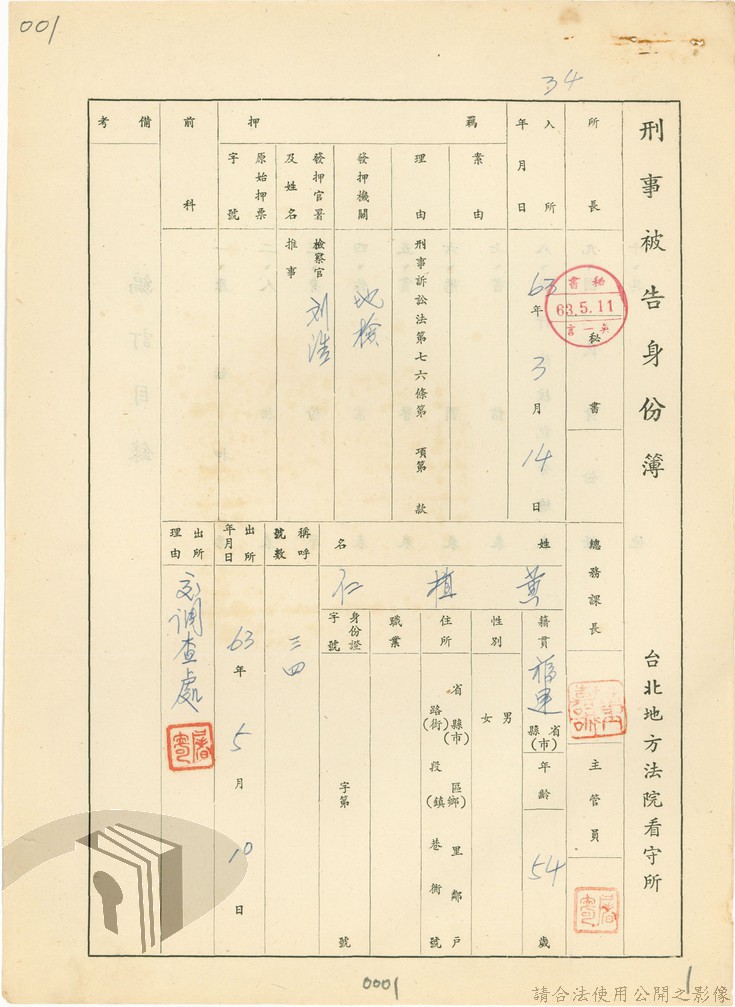 001
34
刑事被告身份簿
台北地方法院看守所
所長
秘書
秘書
63.5.11
總務課長
主管員
入所年月日
63年3月14日
羈押
案由
理由
刑事訴訟法第七六條第 項第 款
發押機關
地檢
發押官署及姓名
檢察官
推事
刘浩
原始押票字號
前科
備考
姓名
黃植仁
籍貫
福建
省縣(市)
年齡
54歲
性別
男
女
住所
省縣(市)區鄉(鎮)里鄰戶
路(街)段巷衖號
職業
身份證字號
字第 號
稱呼號數
三四
出所年月日
63年5月10日
出所理由
交調查處
0001
1
請合法使用公開之影像